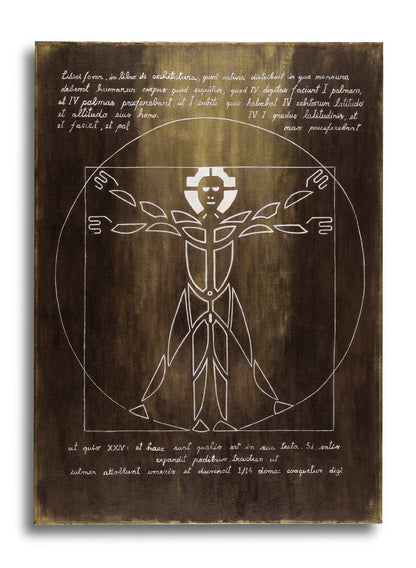 favor, in libro de architectura, quod natura distribuit in quo mensura
deberet humanum corpus quod sequitur, quod IV digitos faciunt I palmam,
et IV palmas praeferebant et I cubiti quae habebat IV cubitorum latitudo
et altitudo eius homo. IV I gradus latitudinis, et
et faciet, et pal mas praeferebant
ut quis XXIV: et haec sunt qualis est in sua tecta. Si satis
expandit pedibus ut
culmen attollunt umeris et 1/14 donec digi.